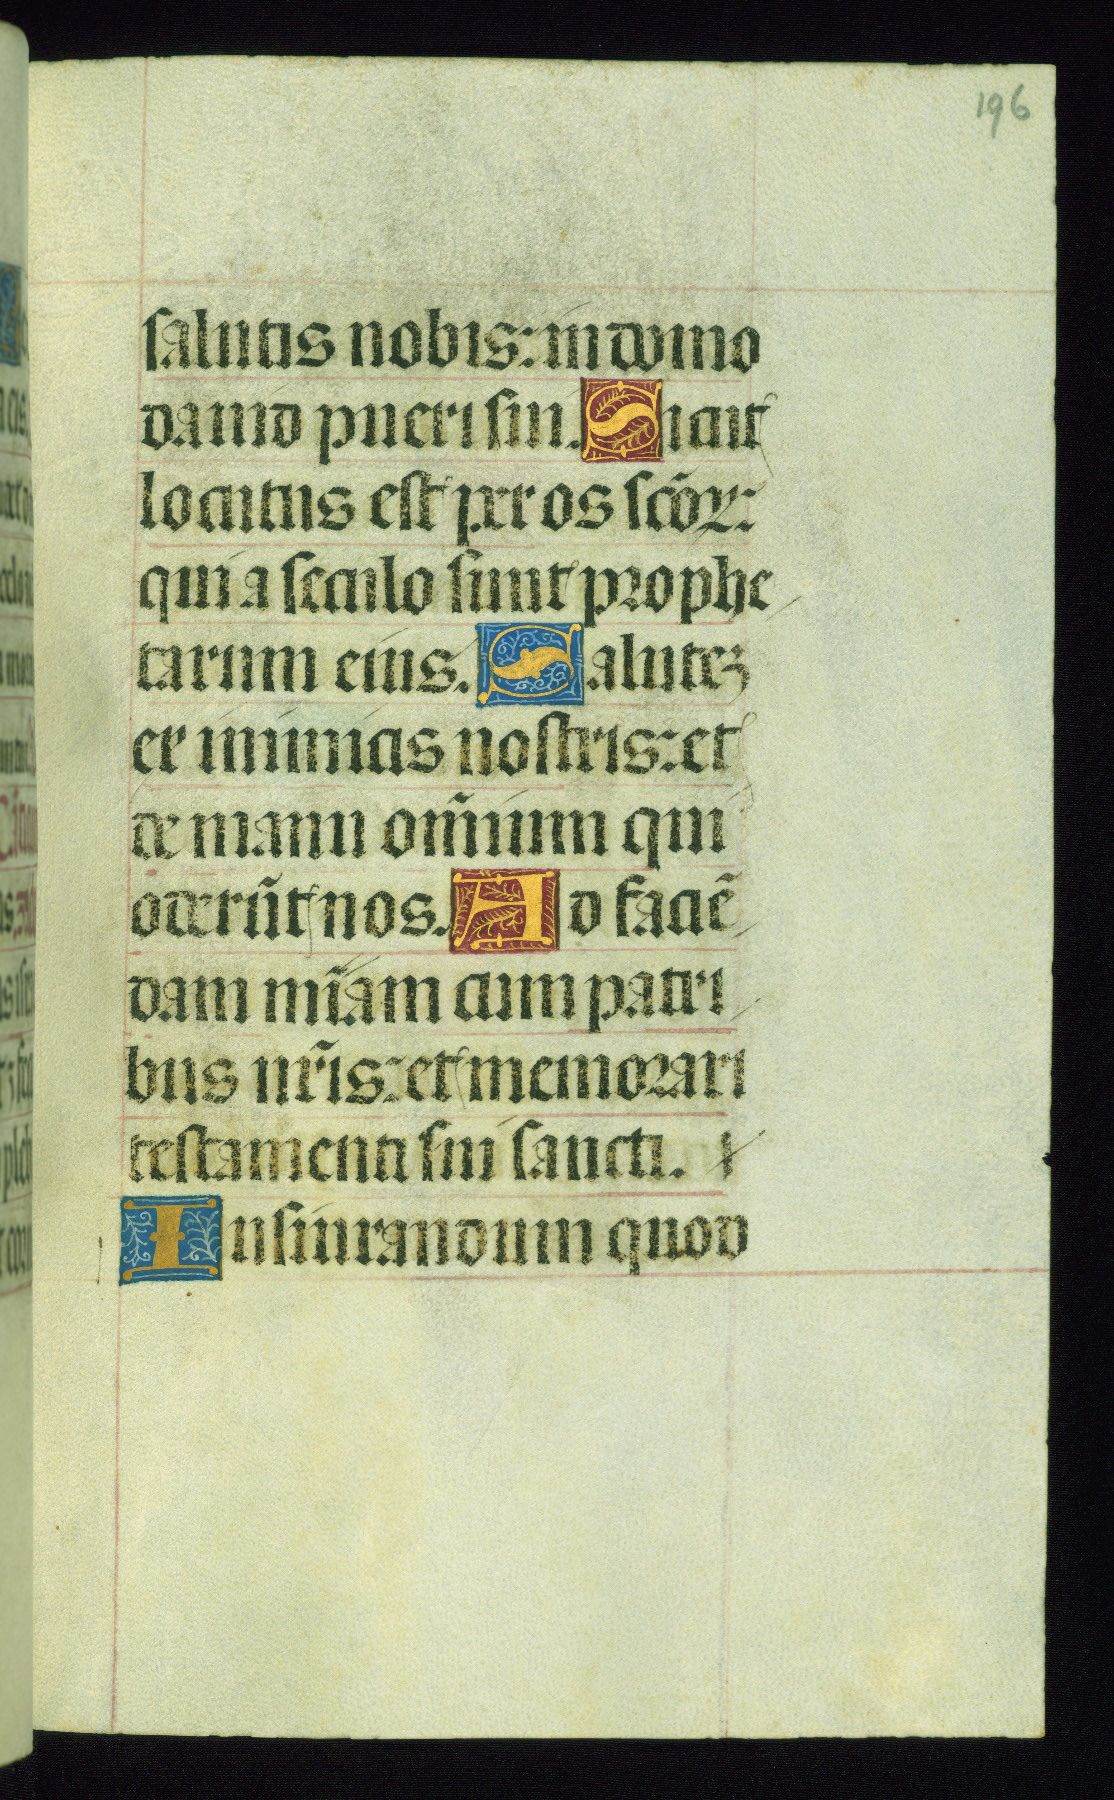 196
salutis nobis: in domo
dauid pueri sui. Sicut
locutus est per os sc̄oꝝ:
qui a seculo sunt prophe
tarum eius. Salutez
ex inimicis nostris: et
de manu om̄nium qui
oderūt nos. Ad faciē
dam mīam cum patri
bus nr̄is: et memorari
testamenti sui sancti.
Iusiurandum quod